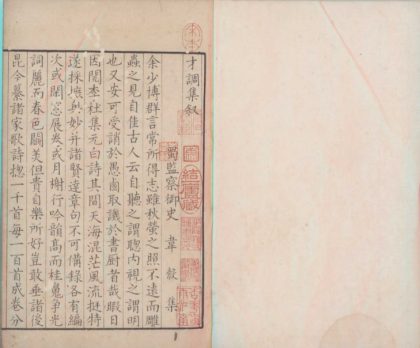 才調集叙
蜀監察御史 韋縠 集
余少博群言常所得志雖秋螢之照不遠而雕
蟲之見自佳古人云自聽之謂聰內視之謂明
也又安可受誚於愚鹵取譏於書厨者哉暇日
因閱李杜集元白詩其間天海混茫風流挺特
遂採摭奧妙并諸賢達章句不可備録各有編
次或閑窓展卷或月榭行吟韻高而桂魄爭光
詞麗而春色闘美但貴自樂所好豈敢垂諸後
昆今纂諸家歌詩揔一千首每一百首成卷分